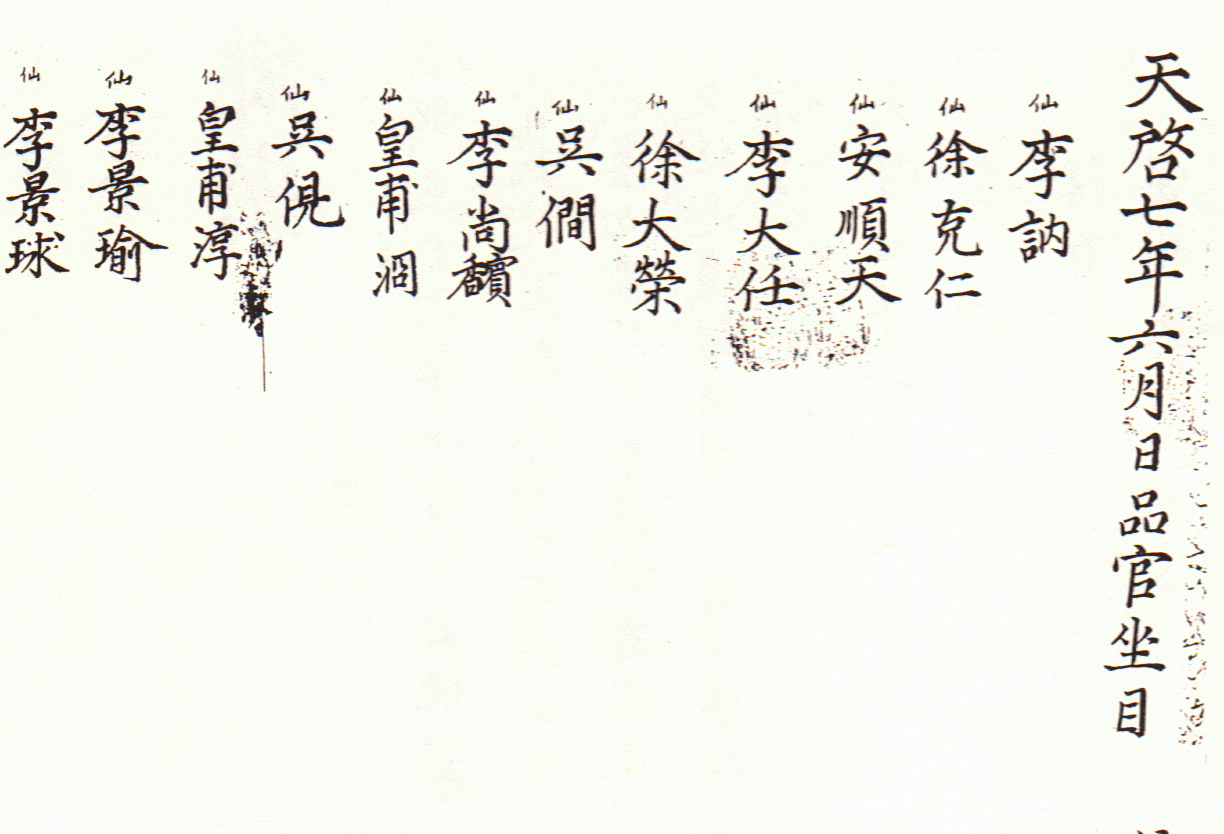 天啓七年六月日品官坐目
仙 李訥
仙 徐克仁
仙 安順天
仙 李大任
仙 徐大榮
仙 吳僩
仙 李尚馪
仙 皇甫涸
仙 吳俔
仙 皇甫淳
仙 李景瑜
仙 李景球